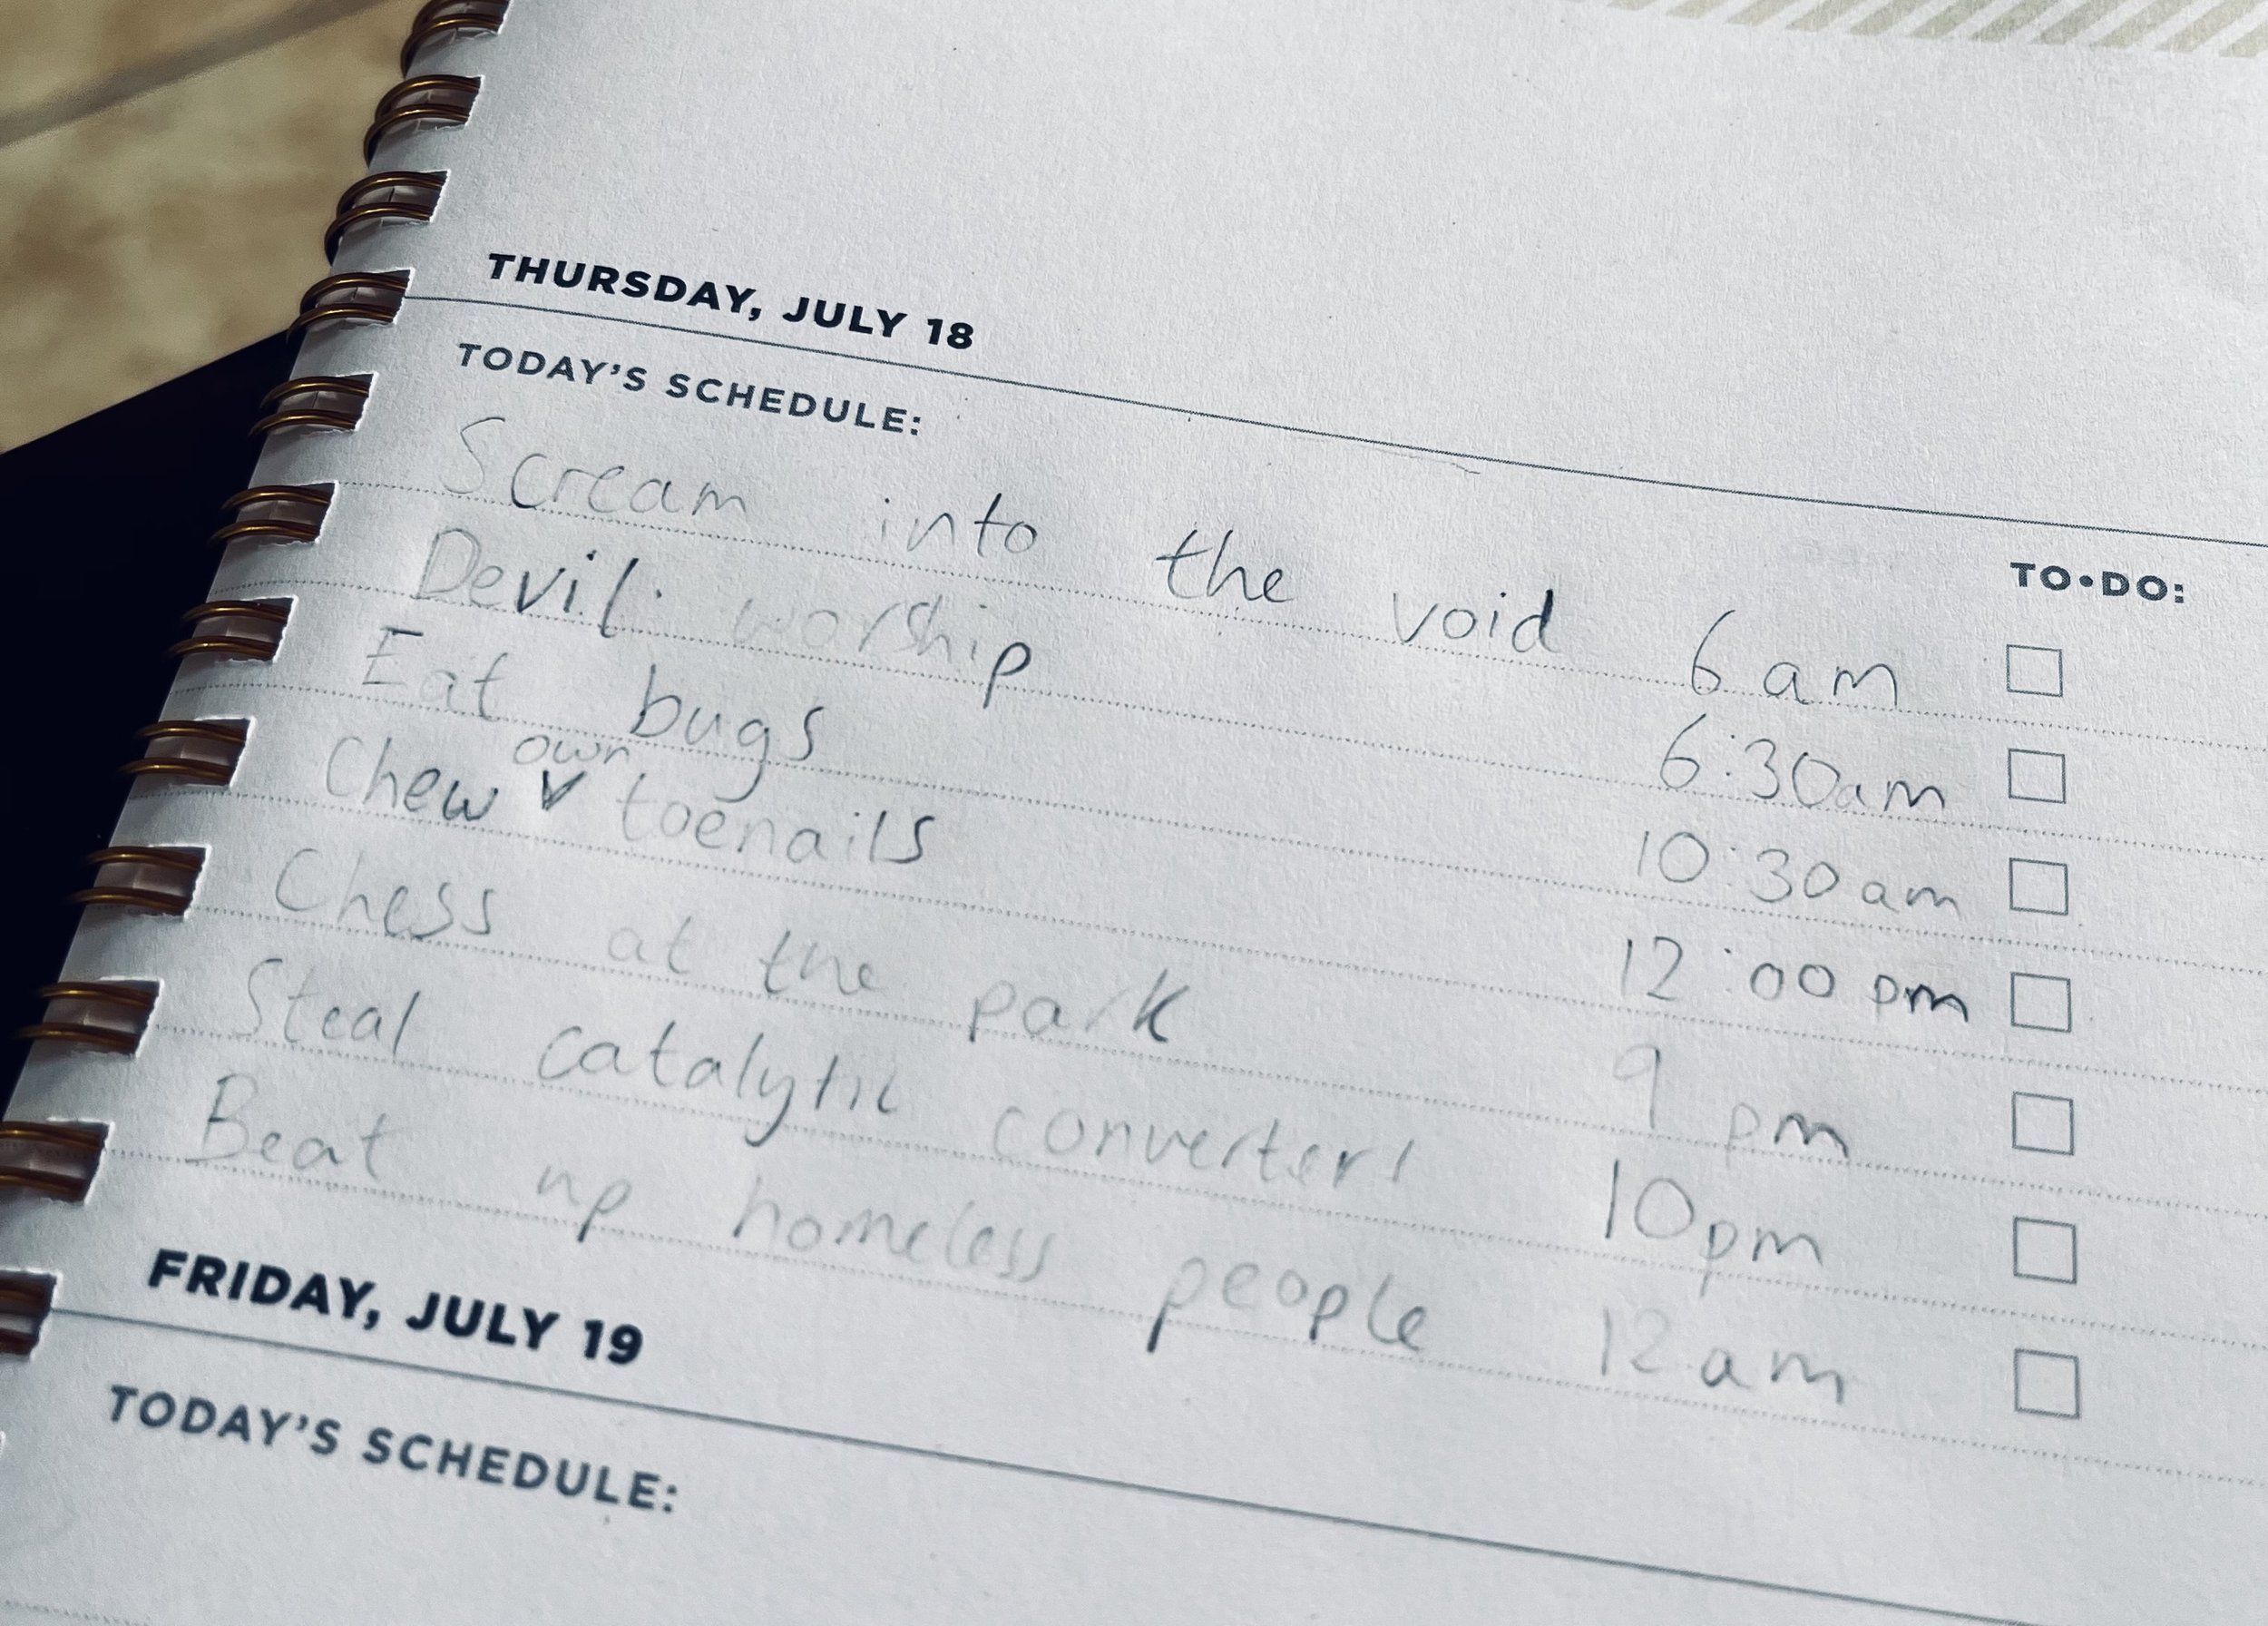 THURSDAY, JULY 18
TODAY'S SCHEDULE:
TO•DO:
Scream into the void 6 am
Devil worship 6:30am
Eat bugs 10:30 am
Chew own toenails 12:00 pm
Chess at the park 9 pm
Steal catalytic converters 10pm
Beat up homeless people 12 am
FRIDAY, JULY 19
TODAY'S SCHEDULE: